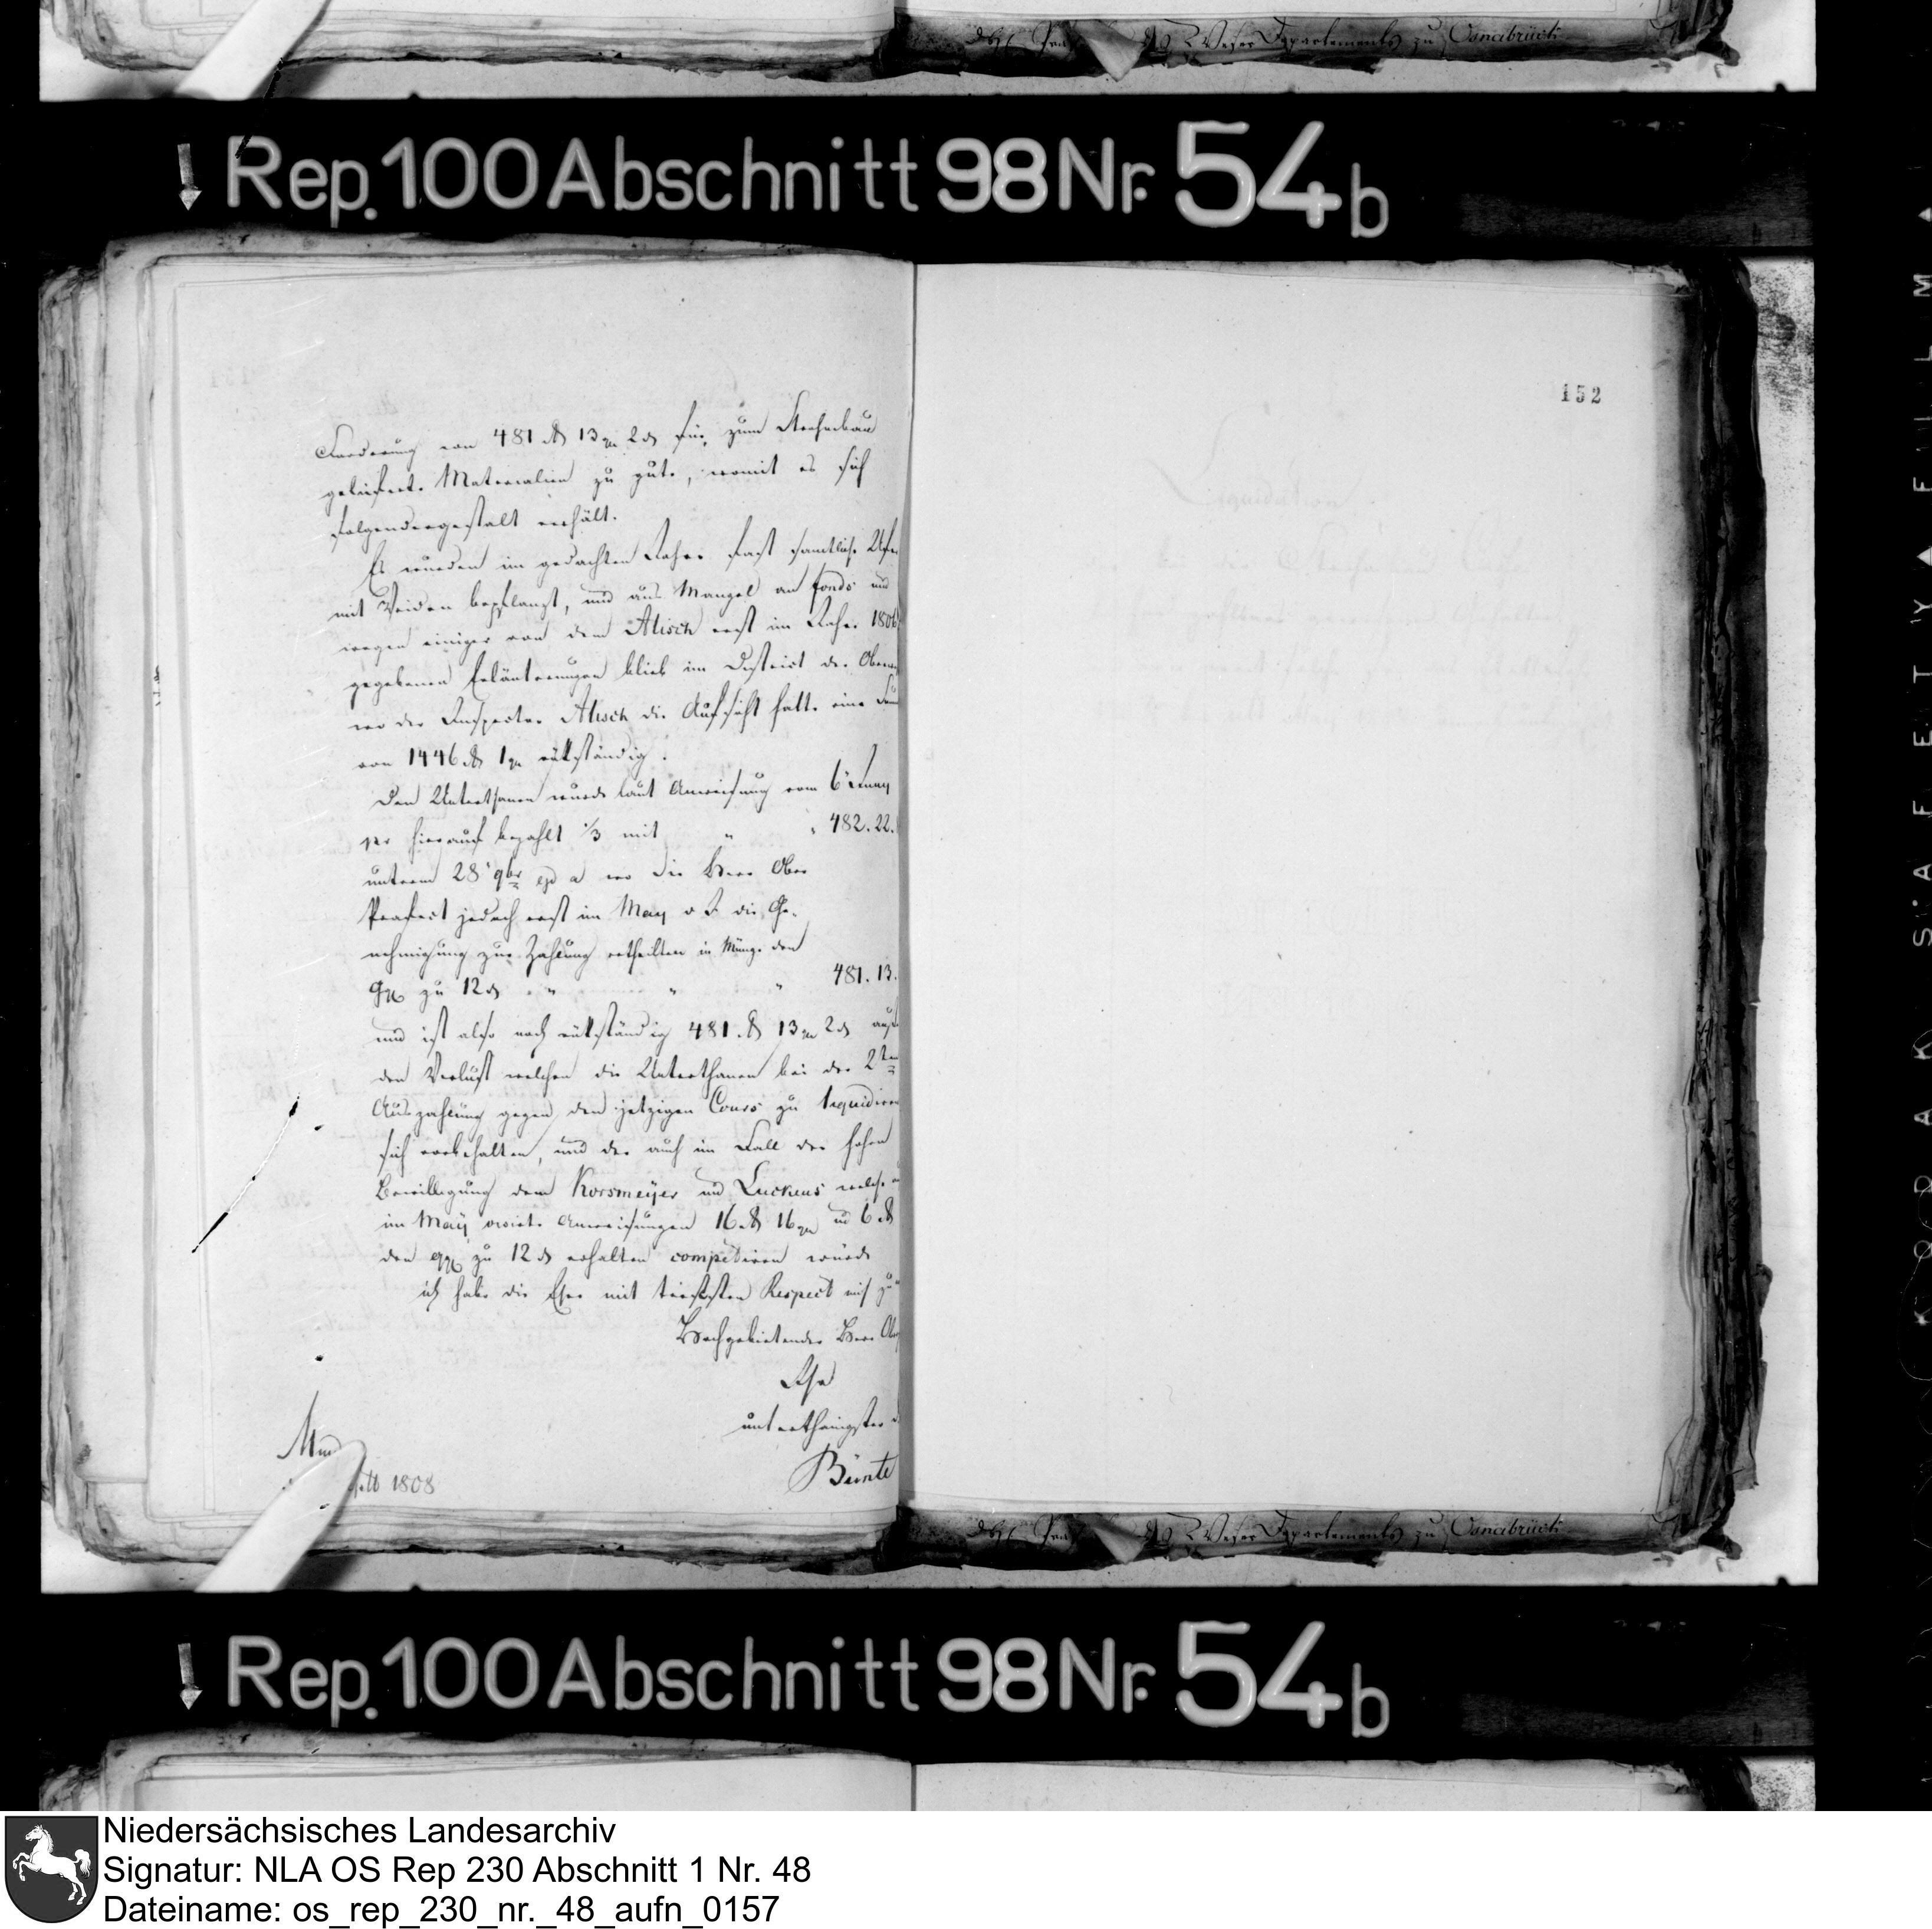 des Weser Departements zu Osnabrück
Rep. 100 Abschnitt 98 Nr. 54b
152
Forderung von 481 rt 13 gr 2 d für zum Strohmbau
gelieferte Materialien zu gute, womit es sich
folgendergestalt verhält.
Es wurden im gedachten Jahre fast samtliche Ufer
mit Weiden bepflanzt, und aus Mangel an fonds und
wegen einiger von dem Alisch erst im Jahre 1806
gegebenen Erläuterungen blieb im District der
wo der Inspector Alisch die Aufsicht hatte eine
von 1446 rt 1 gr rükständig.
Den Unterthanen wurde laut Anweisung vom 6
hierauf bezahlt 1/3 mit " " 482. 22.
unterm 28 9br ej a wo die Herr Ober
Praefect jedoch erst im May d J die Ge-
nehmigung zur Zahlung ertheilten in Münze den
ggr zu 12 d " " " 481. 13.
und ist also noch rükständig 481 rt 13 gr 2 d
den Verlust welchen die Unterthanen bei der 2ten
Auszahlung gegen den jetzigen Cours zu liquidiren
sich vorbehalten, und der auch im Fall der hohen
Bewilligung dem Korsmeyer und Luckens welche
im May Anweisungen 16 rt 16 gr und 6 rt
den ggr zu 12 d erhalten competiren würde
ich habe die Ehre mit tiefsten Respect mich zu
Hochgebietender Herr
Ihr
unterthänigster
Bünte
1808
des Weser Departements zu Osnabrück
Rep. 100 Abschnitt 98 Nr. 54b
Niedersächsisches Landesarchiv
Signatur: NLA OS Rep 230 Abschnitt 1 Nr. 48
Dateiname: os_rep_230_nr._48_aufn_0157